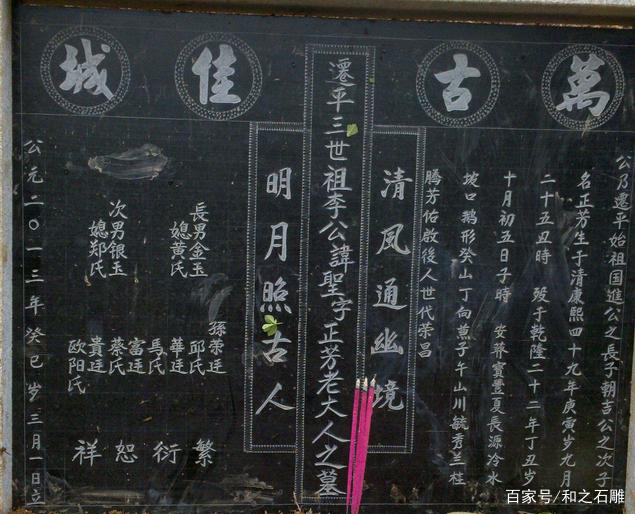 萬古佳城
公乃遷平始祖国進公之長子朝吉公之次子
名正芳生于清康熙四十九年庚寅岁九月
二十五丑時 殁于乾隆二十二年丁丑岁
十月初五日子時 安葬寶豊夏長源冷水
坡口鹅形癸山丁向兼子午山川毓秀兰桂
腾芳佑啟後人世代荣昌
清风通幽境
遷平三世祖李公諱聖字正芳老大人之墓
明月照古人
長男金玉
媳黄氏
次男银玉
媳郑氏
孫荣廷
邱氏
華廷
馬氏
富廷
蔡氏
貴廷
欧阳氏
繁衍恕祥
公元二0一三年癸巳岁三月一日立
百家号/和之石雕